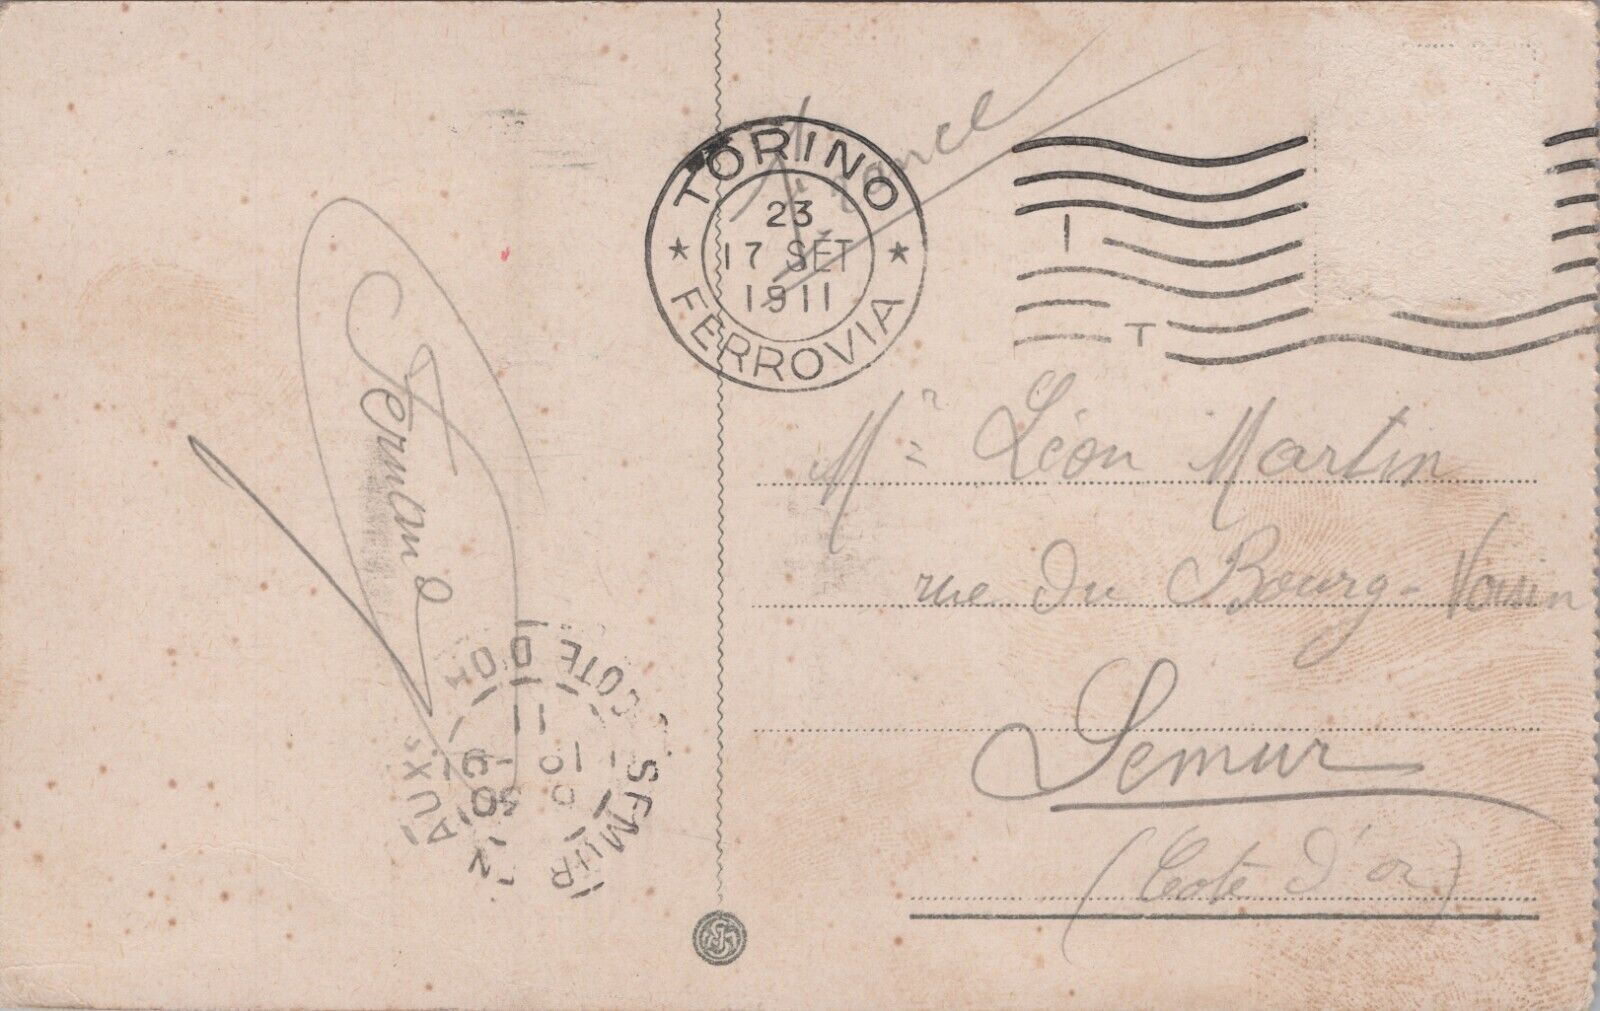 Fernand
TORINO
23
17 SET
1911
FERROVIA
I
T
France
Mr Léon Martin
rue du Bourg-Voisin
Semur
(Côte d'or)
SEMUR EN AUXs
COTE D'OR
19
30 -9
11